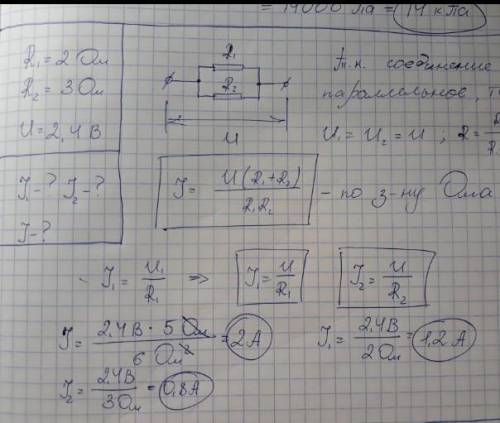 = 14000 Па = 14 кПа
R₁ = 2 Ом
R₂ = 3 Ом
U = 2,4 В
I₁ - ? I₂ - ?
I - ?
R₁
R₂
U
т.к. соединение
параллельное,
U₁ = U₂ = U ; R =
I = U(R₁+R₂) / R₁R₂ - по з-ну Ома
I₁ = U₁/R₁ => I₁ = U/R₁ I₂ = U/R₂
I = 2,4 В · 5 Ом / 6 Ом² = 2 А I₁ = 2,4 В / 2 Ом = 1,2 А
I₂ = 2,4 В / 3 Ом = 0,8 А